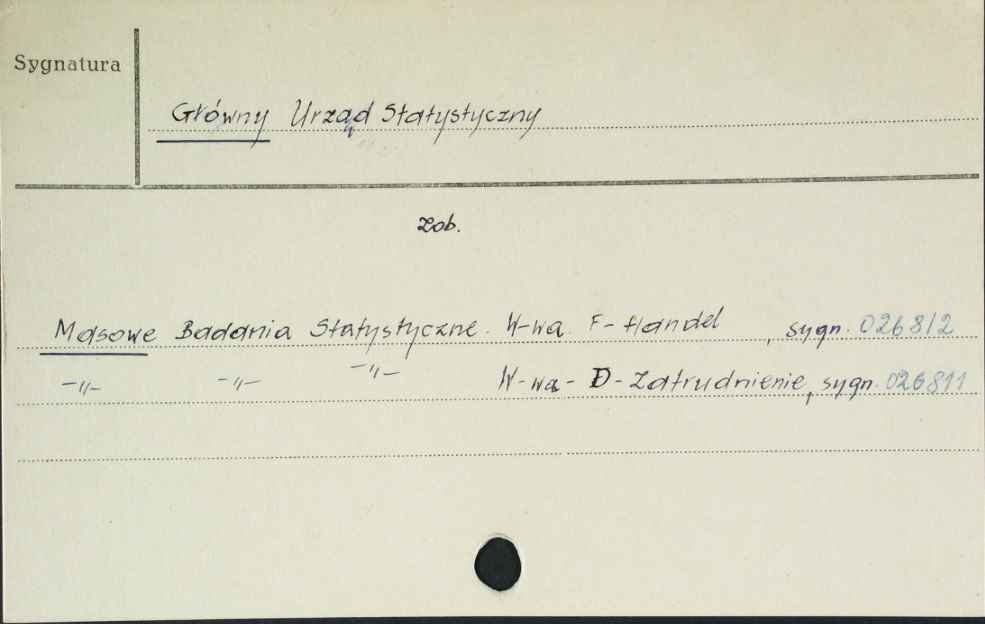 Sygnatura
Główny Urząd Statystyczny
Zob.
Masowe Badania Statystyczne. W-wa. F- Handel, sygn. 026812
-"- -"- -"- W-wa - D - Zatrudnienie, sygn. 026811